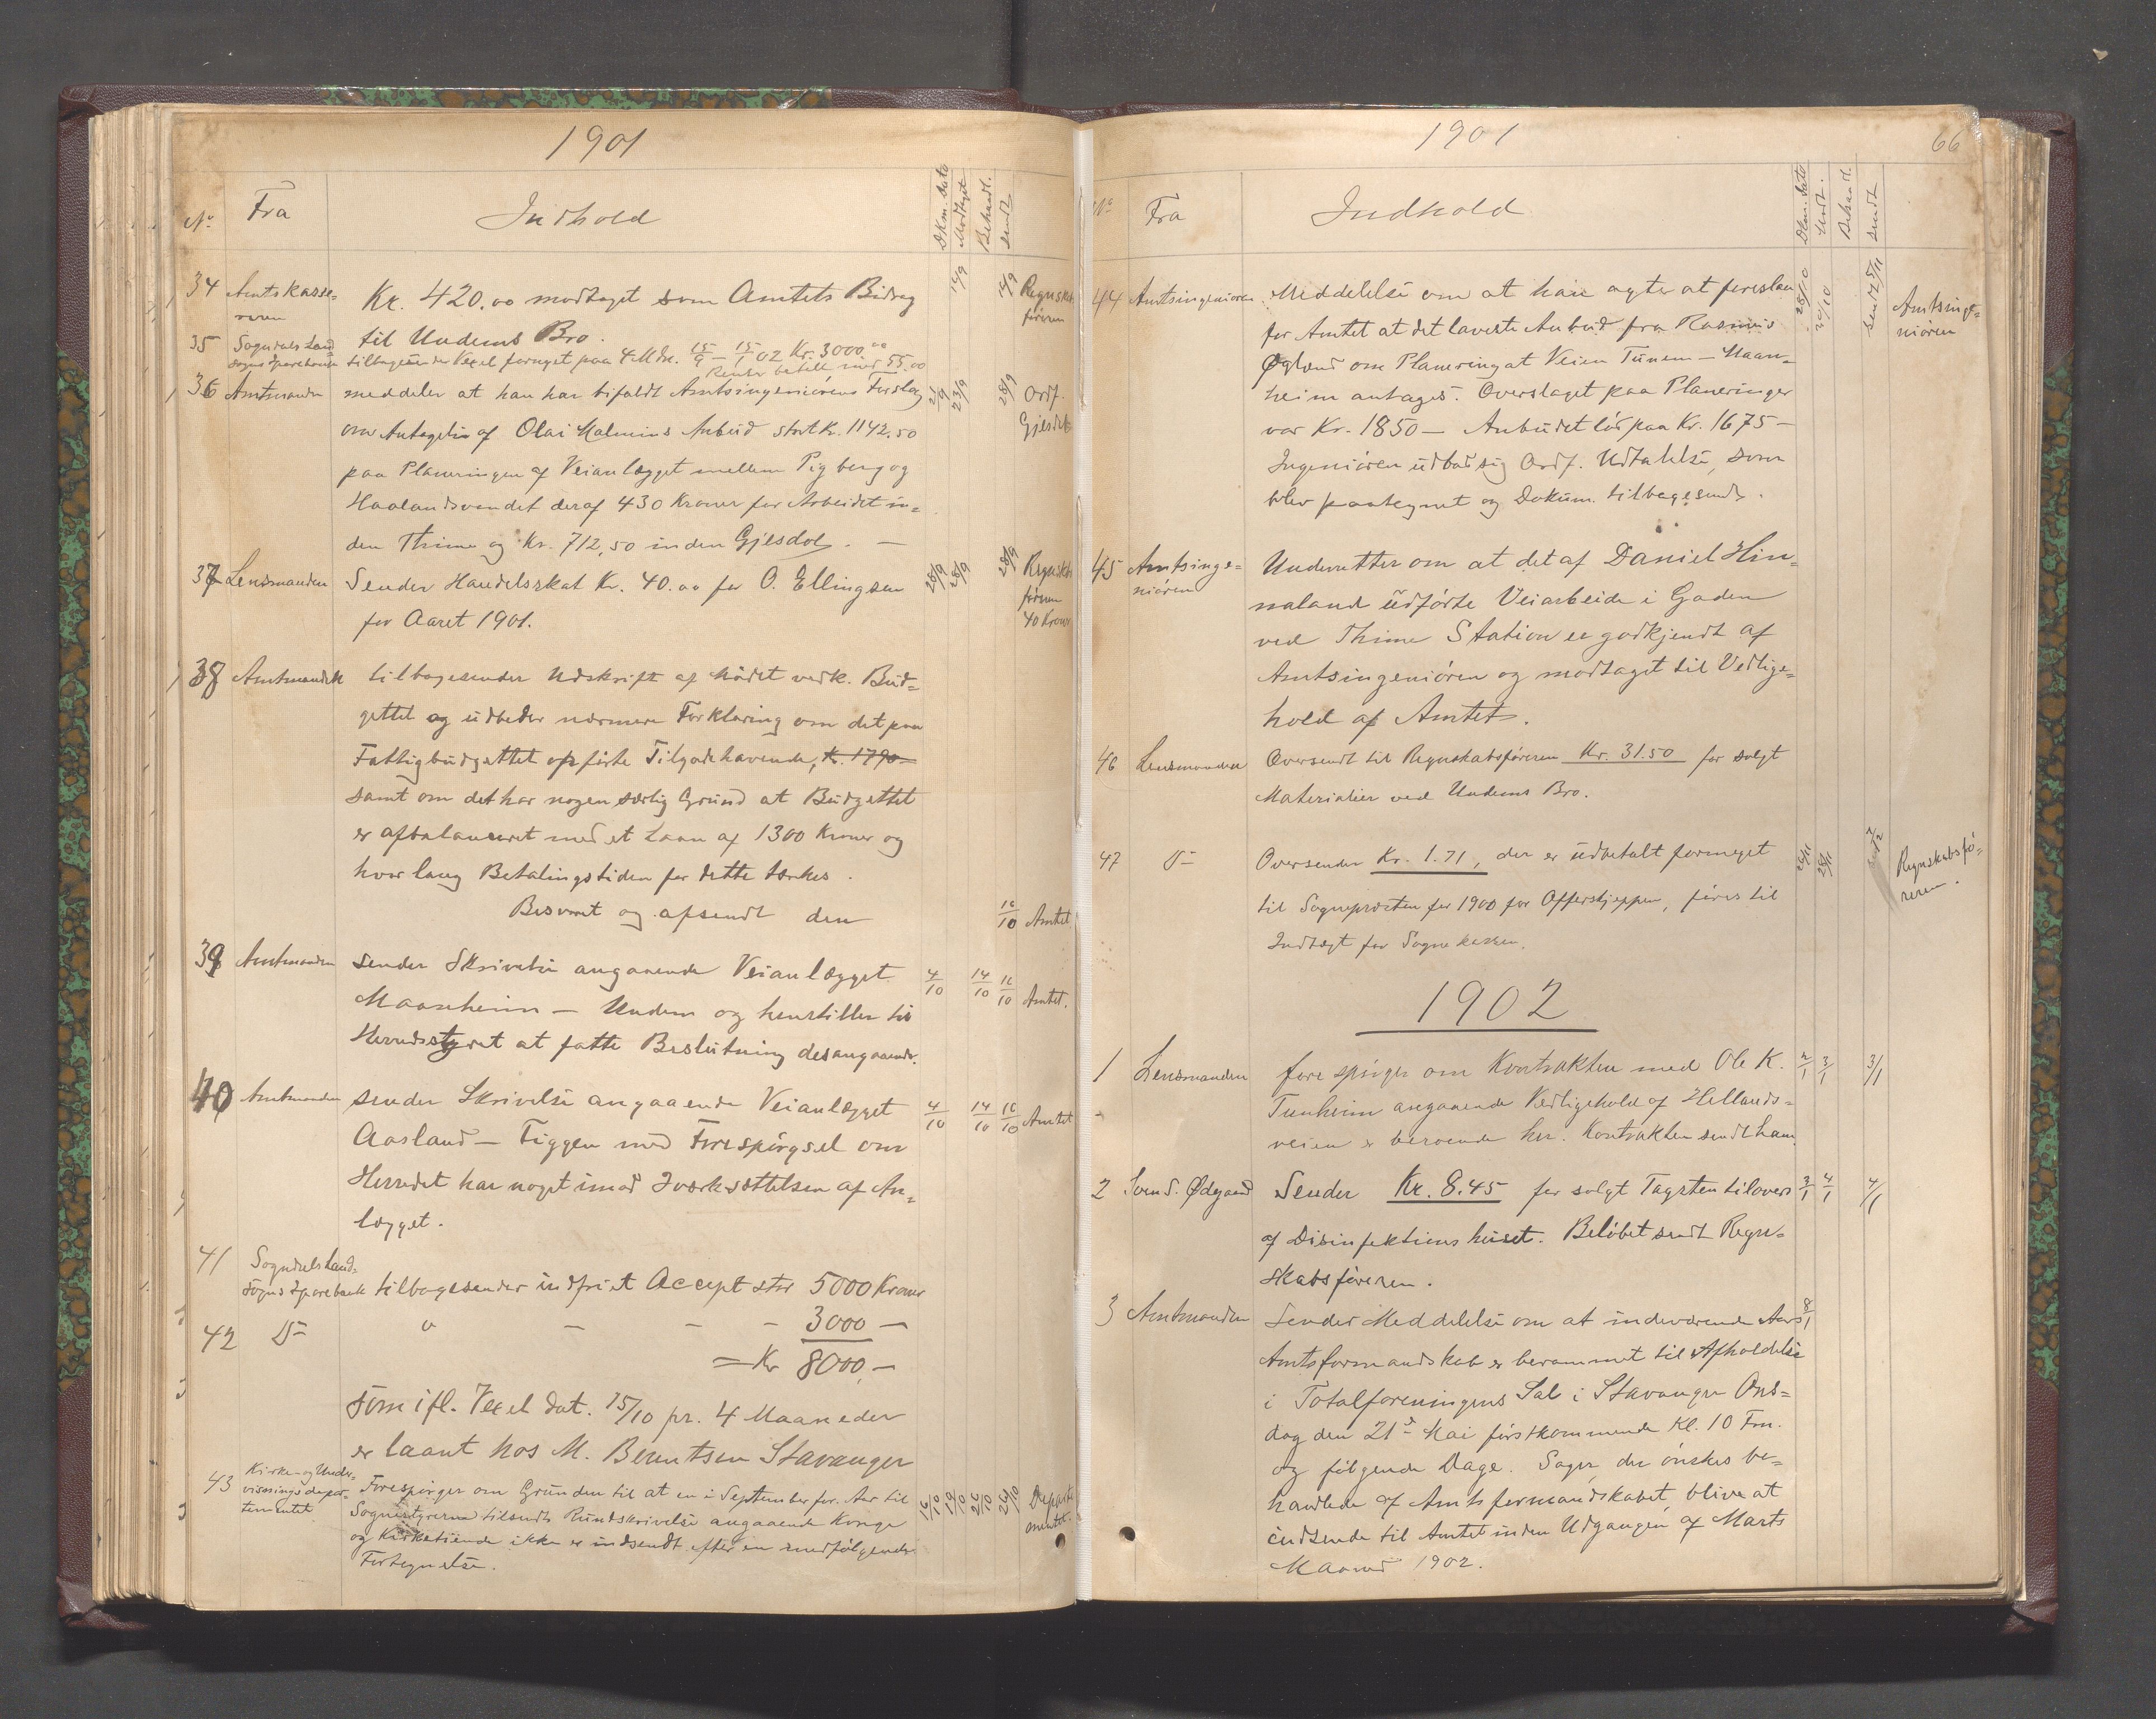 1901
No. Fra Indhold Dkm. Dato Modtaget Behandl. sendt
34 Amtskasse= Kr. 420.00 modtaget som Amtets Bidrag 14/9 14/9 Regnskabs
reren føreren
til Undems Bro.
35 Sogndals Land
sogns Sparebank tilbagesender Vexel fornyet paa 4 Mdr. 15/9 – 15/1 02 Kr. 3000.00
Renter betalt med 55.00
36 Amtmanden meddeler at han har bifaldt Amtsingeniørens Forslag 21/9 23/9 28/9 Ordf.
om Antagelse af Olai Malmins Anbud stort Kr. 1142.50 Gjesdal
paa Planeringen af Veianlægget mellem Pigberg og
Haalandsvandet deraf 430 Kroner for Arbeidet in=
den Thime og Kr. 712,50 inden Gjesdal. —
37 Lensmanden Sender Handelsskat Kr. 40.00 for O. Ellingsen 28/9 28/9 28/9 Regnskabs
føreren
for Aaret 1901. 40 Kroner
38 Amtmanden tilbagesender Udskrift af Mødet vedk. Bud=
gettet og udbeder nærmere Forklaring om det paa
Fattigbudgettet opførte Tilgodehavende, Kr. 1790–
samt om det har nogen særlig Grund at Budgettet
er afbalanceret med et Laan af 1300 Kroner og
hvor lang Betalingstiden for dette tænkes.
Besvaret og afsendt den 16/10 Amtet
39 Amtmanden sender Skrivelse angaaende Veianlægget 4/10 14/10 16/10 Amtet.
Maanheim — Undem og henstiller til
Herredsstyret at fatte Beslutning desangaaende.
40 Amtmanden sender Skrivelse angaaende Veianlægget 4/10 14/10 16/10 Amtet
Aasland — Figgen med Forespørgsel om
Herredet har noget imod Iværksættelsen af An=
lægget.
41 Sogndals Land=
sogns Sparebank tilbagesender indfriet Accept stor 5000 Kroner
42 D– " – – – 3000 –
= Kr 8000,–
som ifl. Vexel dat. 15/10 pr. 4 Maaneder
er laant hos M. Berentsen Stavanger
43 Kirke- og Under=
visningsdepar= Forespørger om Grunden til at en i September for. Aar til 16/10 19/10 26/10 26/10 Departe
tementet Sognestyrerne tilsendt Rundskrivelse angaaende Konge mentet
og Kirketiende ikke er indsendt efter en medfølgende
Fortegnelse.
1901 66
No. Fra Indhold Dkm. Dato Modt. Behandl. sendt
44 Amtsingeniøren Meddelelse om at han agter at foreslaa 28/10 30/10 sendt 5/11 Amtsinge=
niøren
for Amtet at det laveste Anbud fra Rasmus
Øgland om Planering at Veien Tunem — Maan=
heim antages. Overslaget paa Planeringen
var Kr. 1850 — Anbudet lød paa Kr. 1675 —
Ingeniøren udbad sig Ordf. Udtalelse, som
blev paategnet og Dokum. tilbagesendt.
45 Amtsinge= Underretter om at det af Daniel Hin=
niøren naland udførte Veiarbeide i Gaden
ved Thime Station er godkjendt af
Amtsingeniøren og modtaget til Vedlige=
hold af Amtet.
46 Lensmanden Oversendt til Regnskabsføreren Kr. 31.50 for solgt
Materialier ved Undems Bro.
47 D– Oversender Kr. 1.71, der er udbetalt formeget 26/11 28/11 Regnskabsfø=
reren.
til Sognepræsten for 1900 for Offerskjeppen, føres til
Indtægt for Sognekassen.
1902
1 Lensmanden forespørger om Kontrakten med Ole K. 2/1 3/1 3/1
Tunheim angaaende Vedligehold af Hellands=
veien er beroende her. Kontrakten sendt ham.
2 Sven S. Ødegaard Sender Kr. 8.45 for solgt Tagsten tilovers 3/1 4/1 4/1
af Disinfektionshuset. Beløbet sendt Regn=
skabsføreren.
3 Amtmanden Sender Meddelelse om at indeværende Aars 8/1
Amtsformandskab er berammet til Afholdelse
i Totalforeningens Sal i Stavanger Ons=
dag den 21de Mai førstkommende Kl. 10 Fm.
og følgende Dage. Sager, der ønskes be=
handlede af Amtsformandskabet, blive at
indsende til Amtet inden Udgangen af Marts
Maaned 1902.